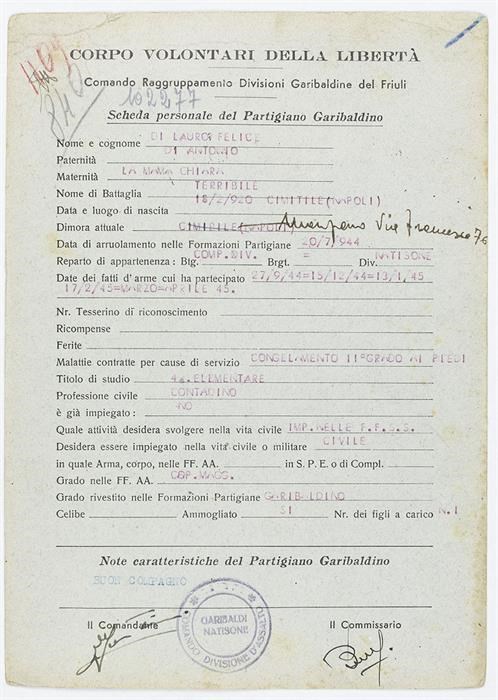 CORPO VOLONTARI DELLA LIBERTÀ
Comando Raggruppamento Divisioni Garibaldine del Friuli
102277
Scheda personale del Partigiano Garibaldino
Nome e cognome DI LAURO FELICE
Paternità DI ANTONIO
Maternità LA MANA CHIARA
Nome di Battaglia TERRIBILE
Data e luogo di nascita 18/2/920 CIMITILE(NAPOLI)
Dimora attuale CIMITILE(NAPOLI) Via Francesco 76
Data di arruolamento nelle Formazioni Partigiane 20/7/944
Reparto di appartenenza: Btg. COMP.DIV. Brgt. = Div. NATISONE
Date dei fatti d'arme cui ha partecipato 27/9/44=15/12/44=13/1/45
17/2/45=MARZO=APRILE 45.
Nr. Tesserino di riconoscimento
Ricompense
Ferite
Malattie contratte per cause di servizio CONGELAMENTO II°GRADO AI PIEDI
Titolo di studio 4a.ELEMENTARE
Professione civile CONTADINO
è già impiegato: NO
Quale attività desidera svolgere nella vita civile IMP.NELLE F.F.S.S.
Desidera essere impiegato nella vita civile o militare CIVILE
in quale Arma, corpo, nelle FF. AA. in S. P. E. o di Compl.
Grado nelle FF. AA. CAP.MAGG.
Grado rivestito nelle Formazioni Partigiane GARIBALDINO
Celibe Ammogliato SI Nr. dei figli a carico N.1
Note caratteristiche del Partigiano Garibaldino
BUON COMPAGNO
Il Comandante
Il Commissario
COMANDO DIVISIONE D'ASSALTO
GARIBALDI
NATISONE